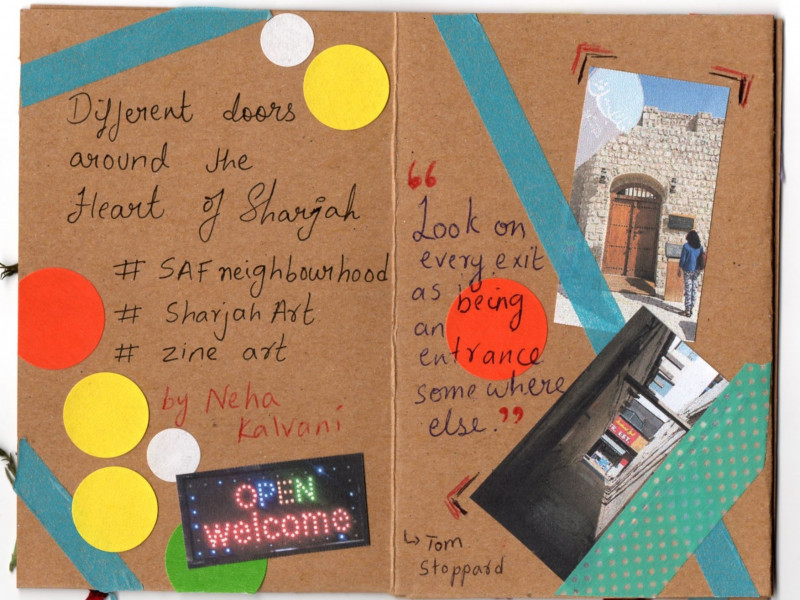 Different doors
around the
Heart of Sharjah
# SAF neighbourhood
# Sharjah Art
# zine art
by Neha
Kalvani
OPEN
welcome
“
Look on
every exit
as being
an
entrance
somewhere
else.”
↳ Tom
Stoppard